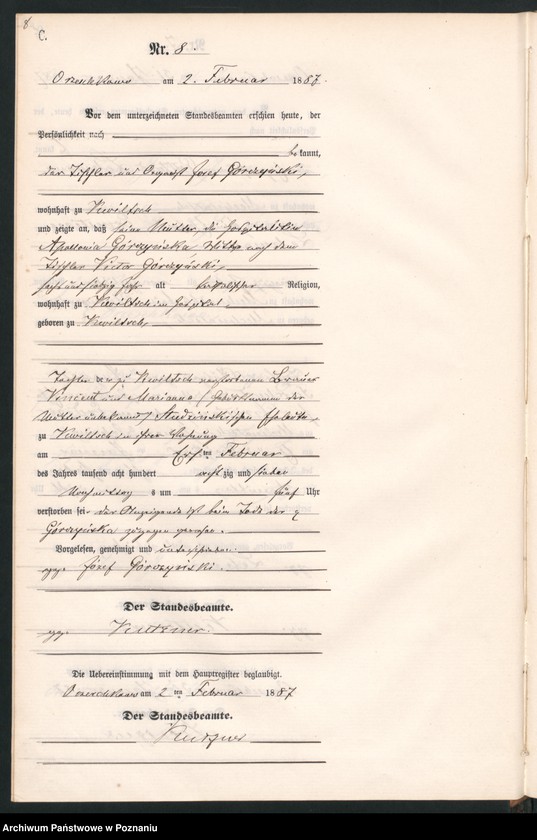 8
C.
Nr. 8.
am 2. Februar 1887.
Vor dem unterzeichneten Standesbeamten erschien heute, der
Persönlichkeit nach
bekannt,
der Tischler und Josef Górczyński,
wohnhaft zu Kwiltsch
und zeigte an, daß seine Mutter, die Hospitalitin
Apollonia Górzyńska Wittwe nach dem
Tischler Victor Górczyński,
sechs und siebzig Jahr alt katholischer Religion,
wohnhaft zu Kwiltsch im Hospital,
geboren zu Kwiltsch,
Tochter der zu Kwiltsch verstorbenen Brauer
Vincent und Marianna (Geburtsname der
Mutter unbekannt) Eheleute
zu Kwiltsch in ihrer Wohnung
am Ersten Februar
des Jahres tausend acht hundert achtzig und sieben
Nachmittag s um fünf Uhr
verstorben sei. der Anzeigende ist beim Tode der
Górczyńska zugegen gewesen.
Vorgelesen, genehmigt und unterschrieben.
gez. Józef Górczyński.
Der Standesbeamte.
gez.
Die Uebereinstimmung mit dem Hauptregister beglaubigt.
am 2 ten Februar 1887
Der Standesbeamte.
Archiwum Państwowe w Poznaniu